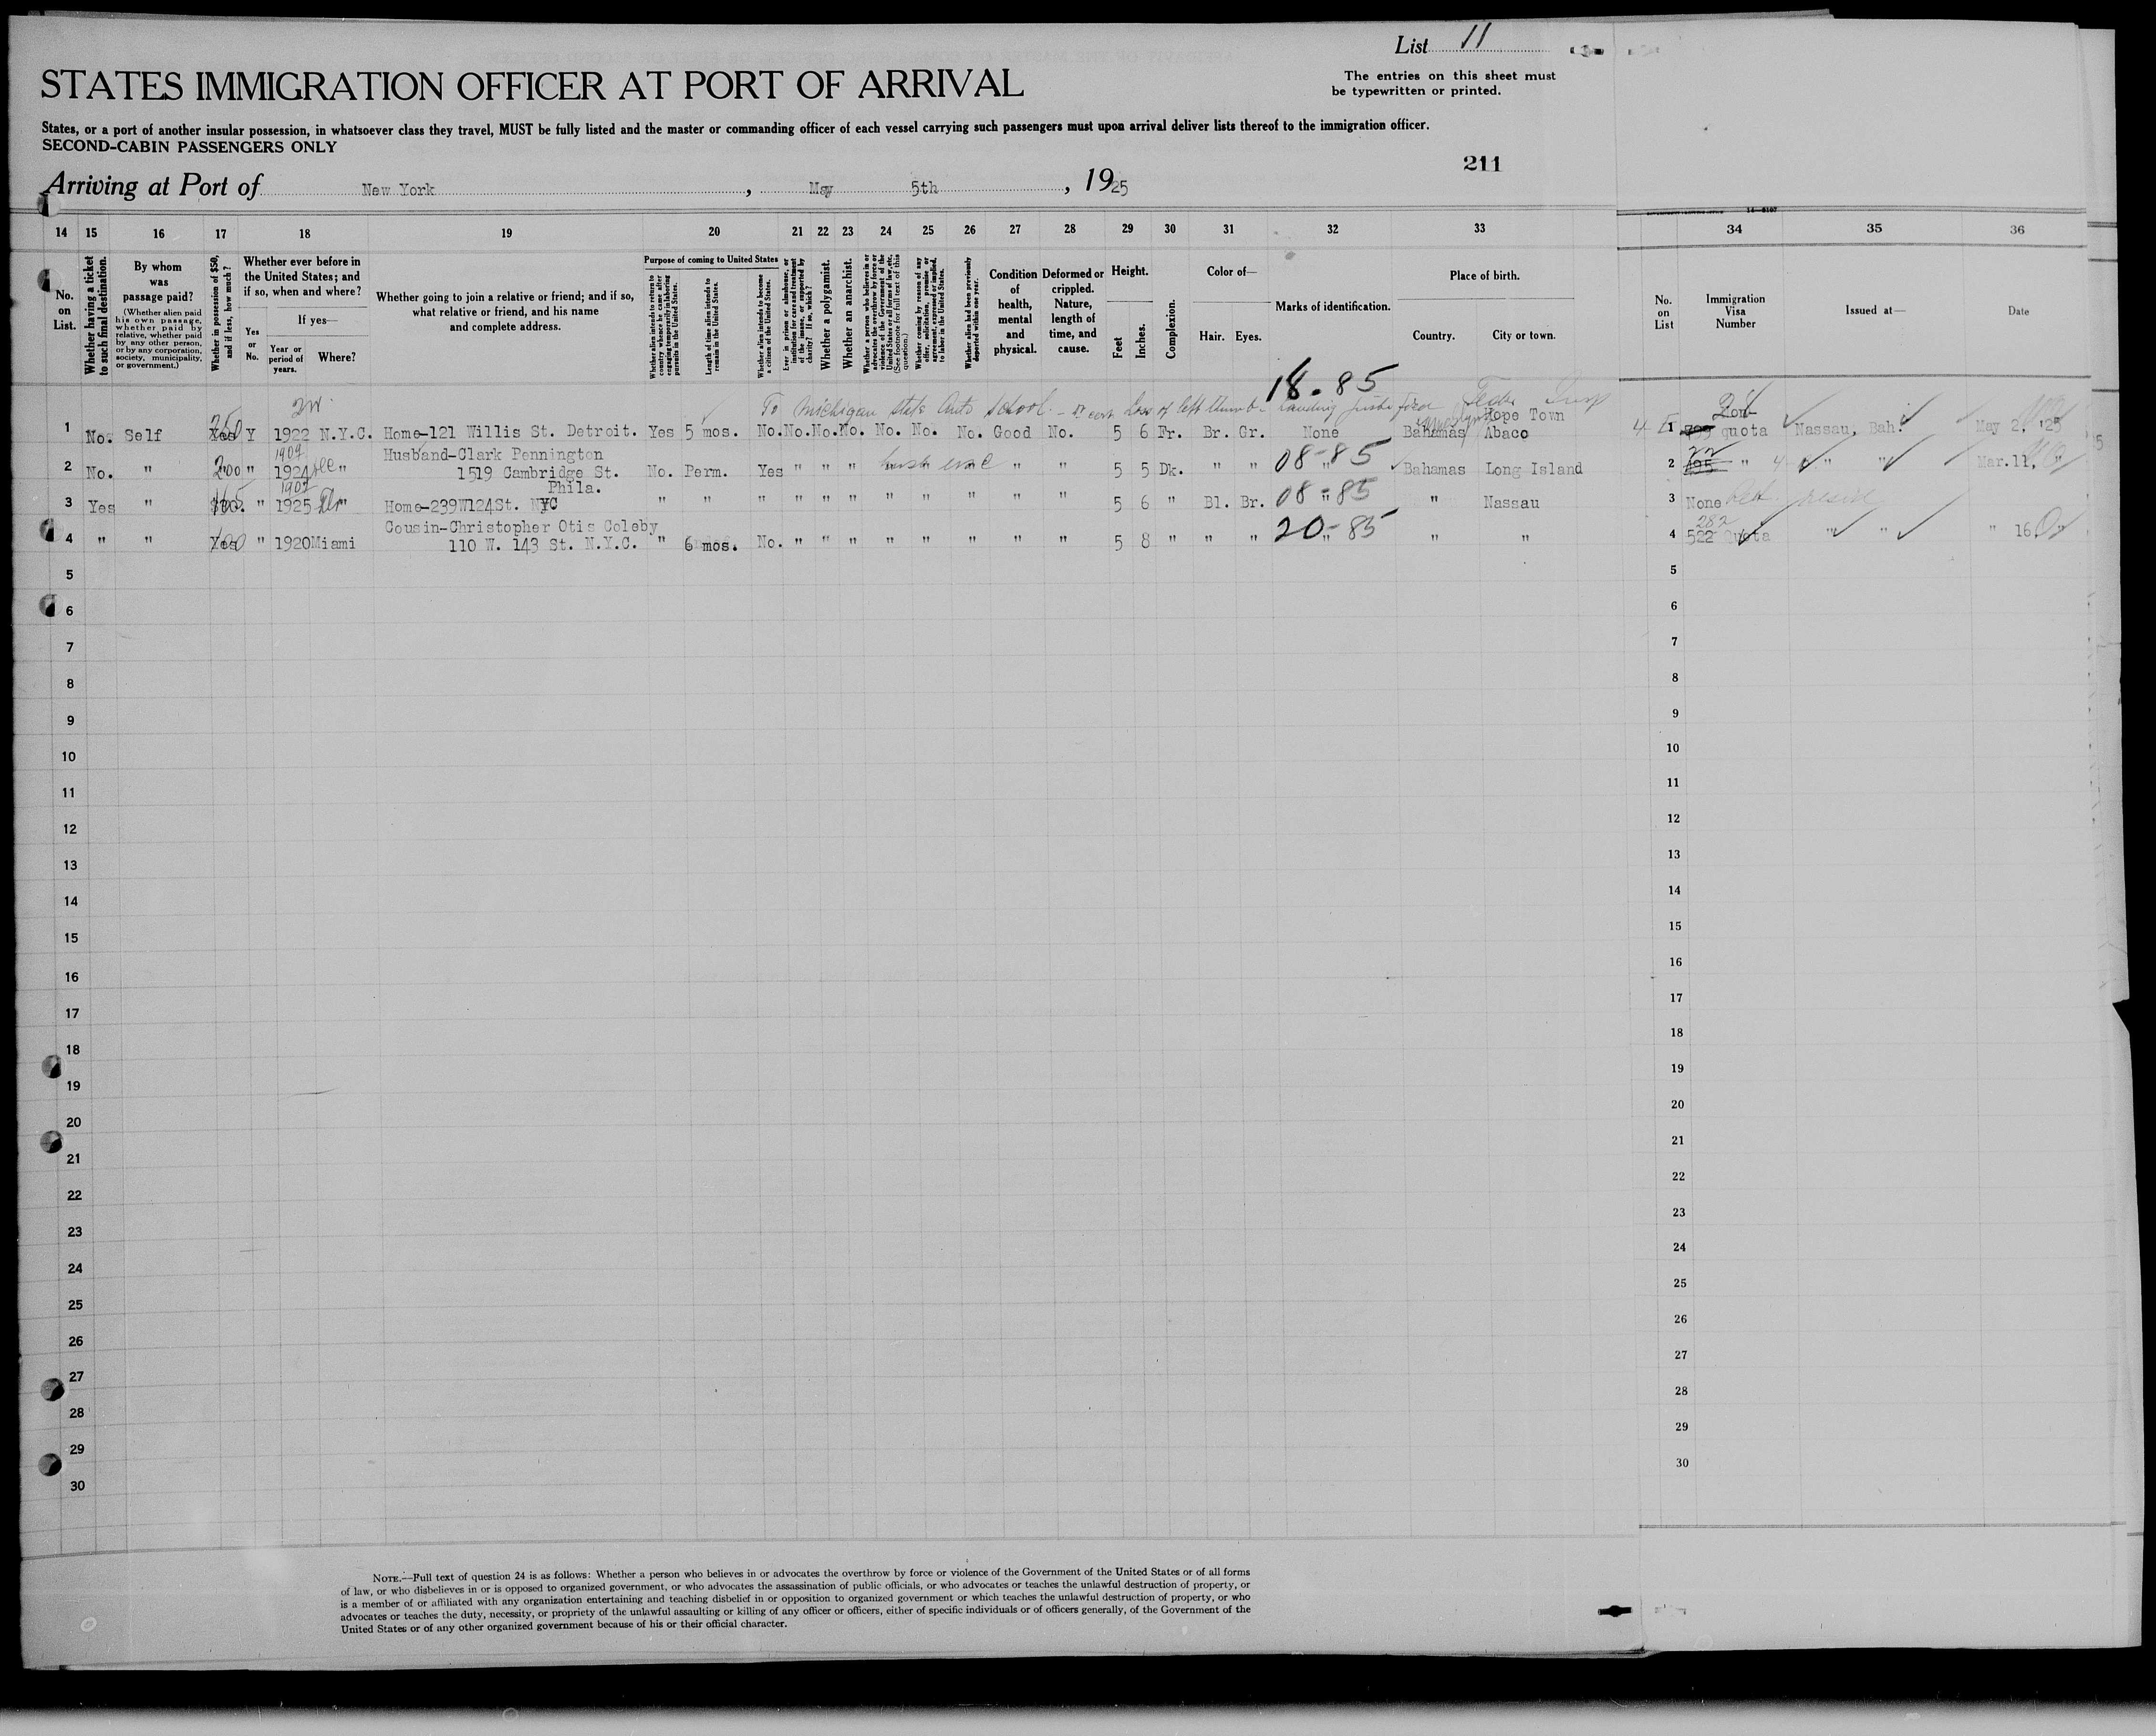 List 11
The entries on this sheet must
be typewritten or printed.
STATES IMMIGRATION OFFICER AT PORT OF ARRIVAL
States, or a port of another insular possession, in whatsoever class they travel, MUST be fully listed and the master or commanding officer of each vessel carrying such passengers must upon arrival deliver lists thereof to the immigration officer.
SECOND-CABIN PASSENGERS ONLY
211
Arriving at Port of New York, May 5th, 1925
14 15 16 17 18 19 20 21 22 23 24 25 26 27 28 29 30 31 32 33 34 35 36
No. on List.
Whether having a ticket to such final destination.
By whom was passage paid?
(Whether alien paid his own passage, whether paid by relative, whether paid by any other person, or by any corporation, society, municipality, or government.)
Whether in possession of $50, and if less, how much?
Whether ever before in the United States; and if so, when and where?
Yes or No.
If yes—
Year or period of years.
Where?
Whether going to join a relative or friend; and if so, what relative or friend, and his name and complete address.
Purpose of coming to United States
Whether alien intends to return to country whence he came after engaging temporarily in laboring pursuits in the United States.
Length of time alien intends to remain in the United States.
Whether alien intends to become a citizen of the United States.
Ever in prison or almshouse, or institution for care and treatment of the insane, or supported by charity? If so, which?
Whether a polygamist.
Whether an anarchist.
Whether a person who believes in or advocates the overthrow by force or violence of the Government of the United States or all forms of law, etc. (See footnote for full text of this question.)
Whether coming by reason of any offer, solicitation, promise or agreement, expressed or implied, to labor in the United States.
Whether alien had been previously deported within one year.
Condition of health, mental and physical.
Deformed or crippled. Nature, length of time, and cause.
Height.
Feet
Inches.
Complexion.
Color of—
Hair. Eyes.
Marks of identification.
Place of birth.
Country. City or town.
No. on List
Immigration Visa Number
Issued at—
Date
18-85
To Michigan State Auto School. Loss of left thumb
Hope Town
1 No. Self 250 Y 1922 N.Y.C. Home-121 Willis St. Detroit. Yes 5 mos. No. No. No. No. No. No. No. Good No. 5 6 Fr. Br. Gr. None Bahamas Abaco 1 quota Nassau, Bah. May 2, '25
1907
Husband-Clark Pennington
2 No. " 200 " 1924 " 1519 Cambridge St. No. Perm. Yes " " " " " 5 5 Dk. " " 08-85 Bahamas Long Island 2 " " " Mar.11, "
Phila.
1907
3 Yes " " 1925 " Home-239W124St. NYC " " " " " " " " " " " 5 6 " Bl. Br. 08-85 " Nassau 3 None
Cousin-Christopher Otis Coleby
4 " " " 1920 Miami 110 W. 143 St. N.Y.C. " 6 mos. No. " " " " " " " " 5 8 " " " 20-85 " " 4 522 Quota " " " 16, "
282
5 5
6 6
7 7
8 8
9 9
10 10
11 11
12 12
13 13
14 14
15 15
16 16
17 17
18 18
19 19
20 20
21 21
22 22
23 23
24 24
25 25
26 26
27 27
28 28
29 29
30 30
NOTE.—Full text of question 24 is as follows: Whether a person who believes in or advocates the overthrow by force or violence of the Government of the United States or of all forms
of law, or who disbelieves in or is opposed to organized government, or who advocates the assassination of public officials, or who advocates or teaches the unlawful destruction of property, or
is a member of or affiliated with any organization entertaining and teaching disbelief in or opposition to organized government or which teaches the unlawful destruction of property, or who
advocates or teaches the duty, necessity, or propriety of the unlawful assaulting or killing of any officer or officers, either of specific individuals or of officers generally, of the Government of the
United States or of any other organized government because of his or their official character.